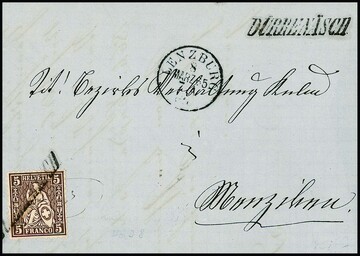 DÜRRENÄSCH
LENZBURG
8
MARZ 65
Tit! Bezirks Verwaltung Kulm
Menziken.
5 HELVETIA 5
FRANCO